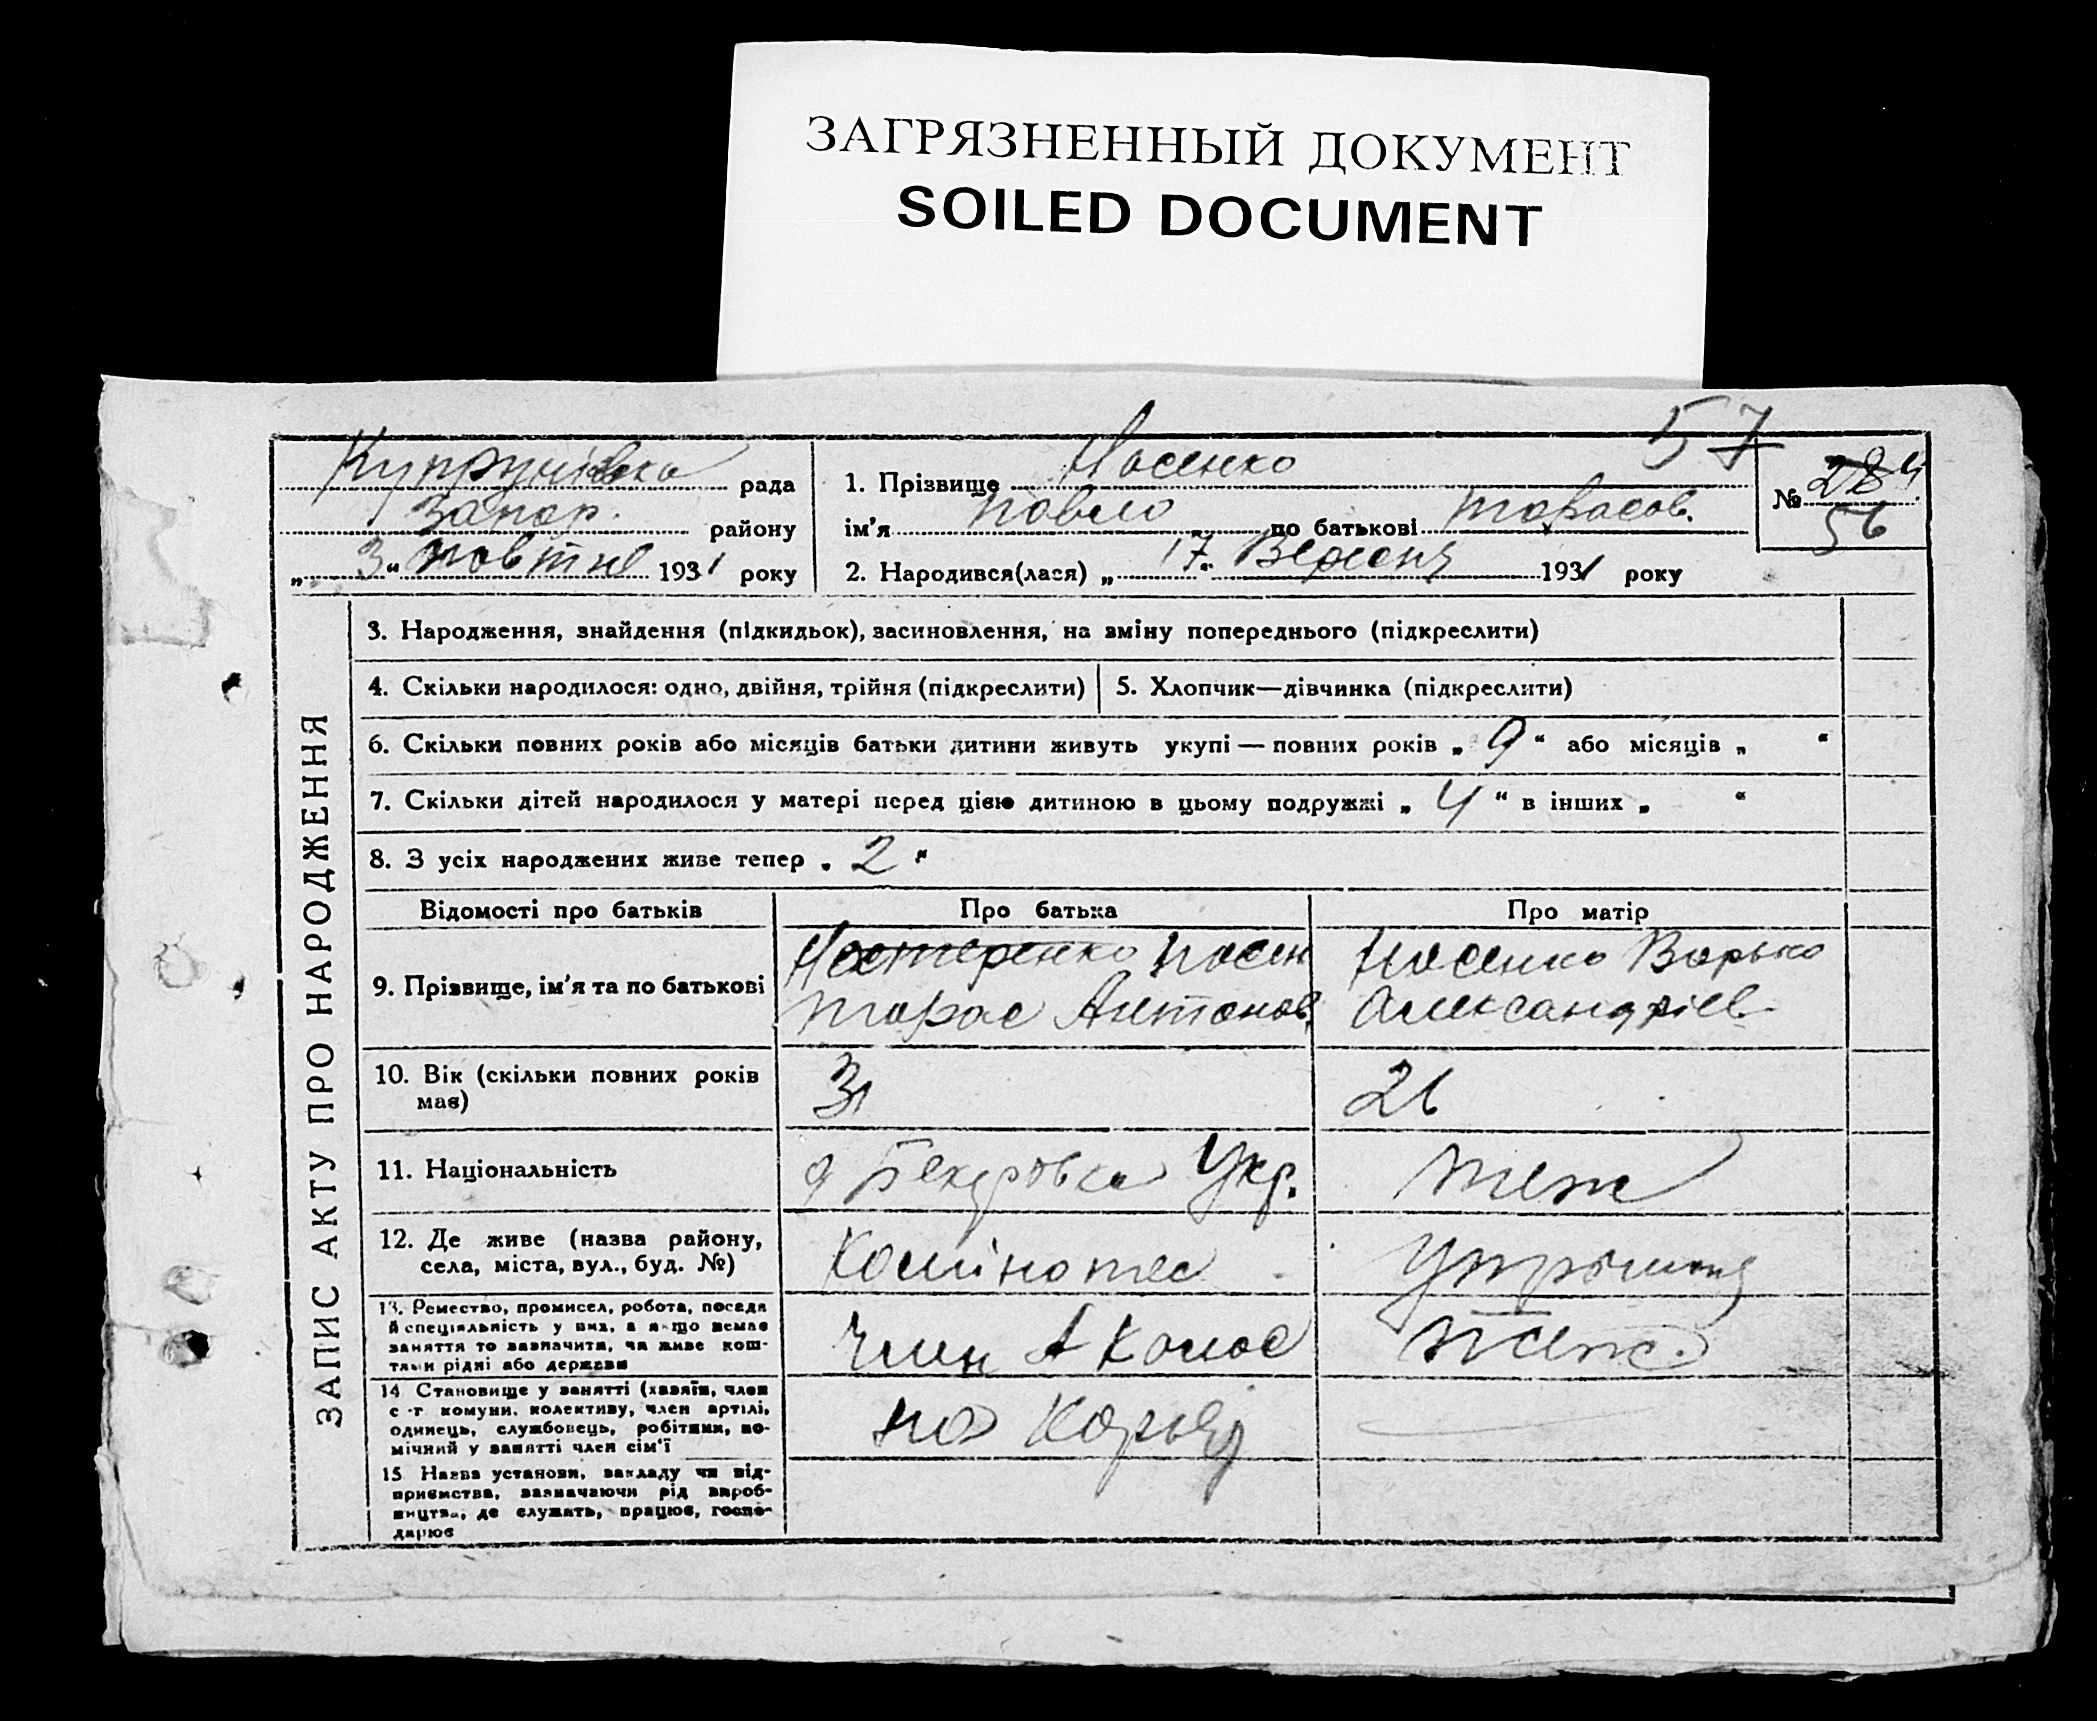 ЗАГРЯЗНЕННЫЙ ДОКУМЕНТ
SOILED DOCUMENT
57
рада
Запор. району
„ 3 " 1931 року
1. Прізвище Носенко
ім'я Павло по батькові Тарасов.
2. Народився(лася) „ 17 " Вересня 1931 року
№ 284
56
ЗАПИС АКТУ ПРО НАРОДЖЕННЯ
3. Народження, знайдення (підкидьок), засиновлення, на зміну попереднього (підкреслити)
4. Скільки народилося: одно, двійня, трійня (підкреслити)
5. Хлопчик—дівчинка (підкреслити)
6. Скільки повних років або місяців батьки дитини живуть укупі — повних років „ 9 " або місяців „ "
7. Скільки дітей народилося у матері перед цією дитиною в цьому подружжі „ 4 " в інших „ "
8. З усіх народжених живе тепер „ 2 "
Відомості про батьків
Про батька
Про матір
9. Прізвище, ім'я та по батькові
Нестеренко Носен
Тарас Антонов.
Носенко Варька
Александрієв.
10. Вік (скільки повних років
має)
31
26
11. Національність
Укр.
теж
12. Де живе (назва району,
села, міста, вул., буд. №)
13. Ремество, промисел, робота, посада
й спеціяльність у них, а якщо немає
заняття то зазначити, чи живе кош-
тами рідні або держави
Член А Колос
теж.
14. Становище у занятті (хазяїн, член
с.-г комуни, колективу, член артілі,
одинець, службовець, робітник, по-
мічний у занятті член сім'ї
на Карьер
15. Назва установи, закладу чи під-
приємства, зазначаючи рід вироб-
ництва, де служать, працює, госпо-
дарює